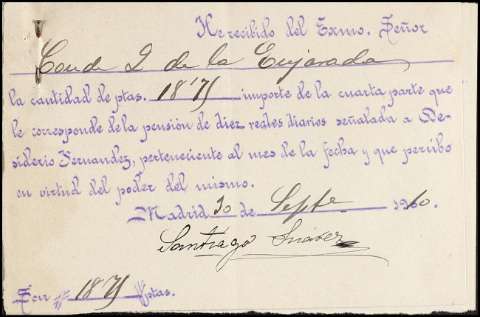 He recibido del Exmo. Señor
Conde de la Enjarada
la cantidad de ptas. 18'75 importe de la cuarta parte que
le corresponde de la pensión de diez reales diarios señalada a De-
siderio Fernandez, perteneciente al mes de la fecha y que percibo
en virtud del poder del mismo.
Madrid 30 de Septe 1910.
Santiago Suárez
Son 18'75 ptas.